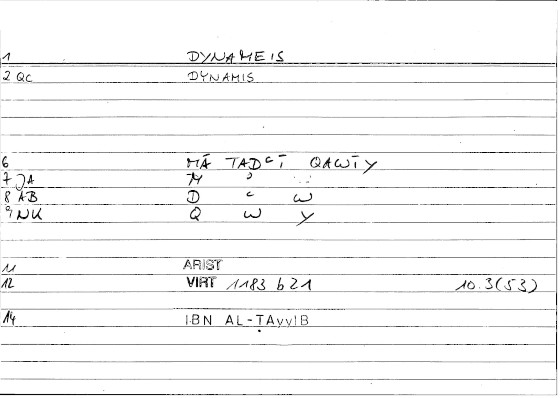 1 DYNAMEIS
2 QC DYNAMIS
6 MĀ TADʿĪ QAWĪY
7 JA M ʾ
8 AB D ʿ W
9 NK Q W Y
11 ARIST
12 VIRT 1183 b21 10.3(53)
14 IBN AL-ṬAyyIB